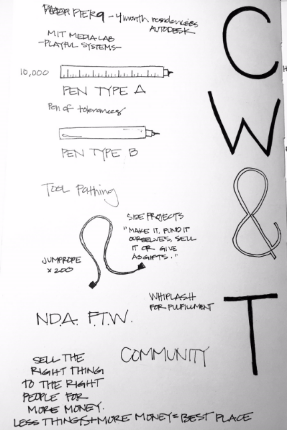 PIER 9 - 4 month residencies
AUTODESK
MIT MEDIA LAB
-PLAYFUL SYSTEMS-
10,000
PEN TYPE A
Pen of tolerances
PEN TYPE B
Tool Pathing
SIDE PROJECTS
"MAKE IT, FUND IT
OURSELVES, SELL
IT OR GIVE
AS GIFTS."
JUMPROPE
x 200
WHIPLASH
FOR FULFILLMENT
N.D.A. F.T.W.
COMMUNITY
SELL THE
RIGHT THING
TO THE RIGHT
PEOPLE FOR
MORE MONEY.
LESS THINGS + MORE MONEY = BEST PLACE
C
W
&
T